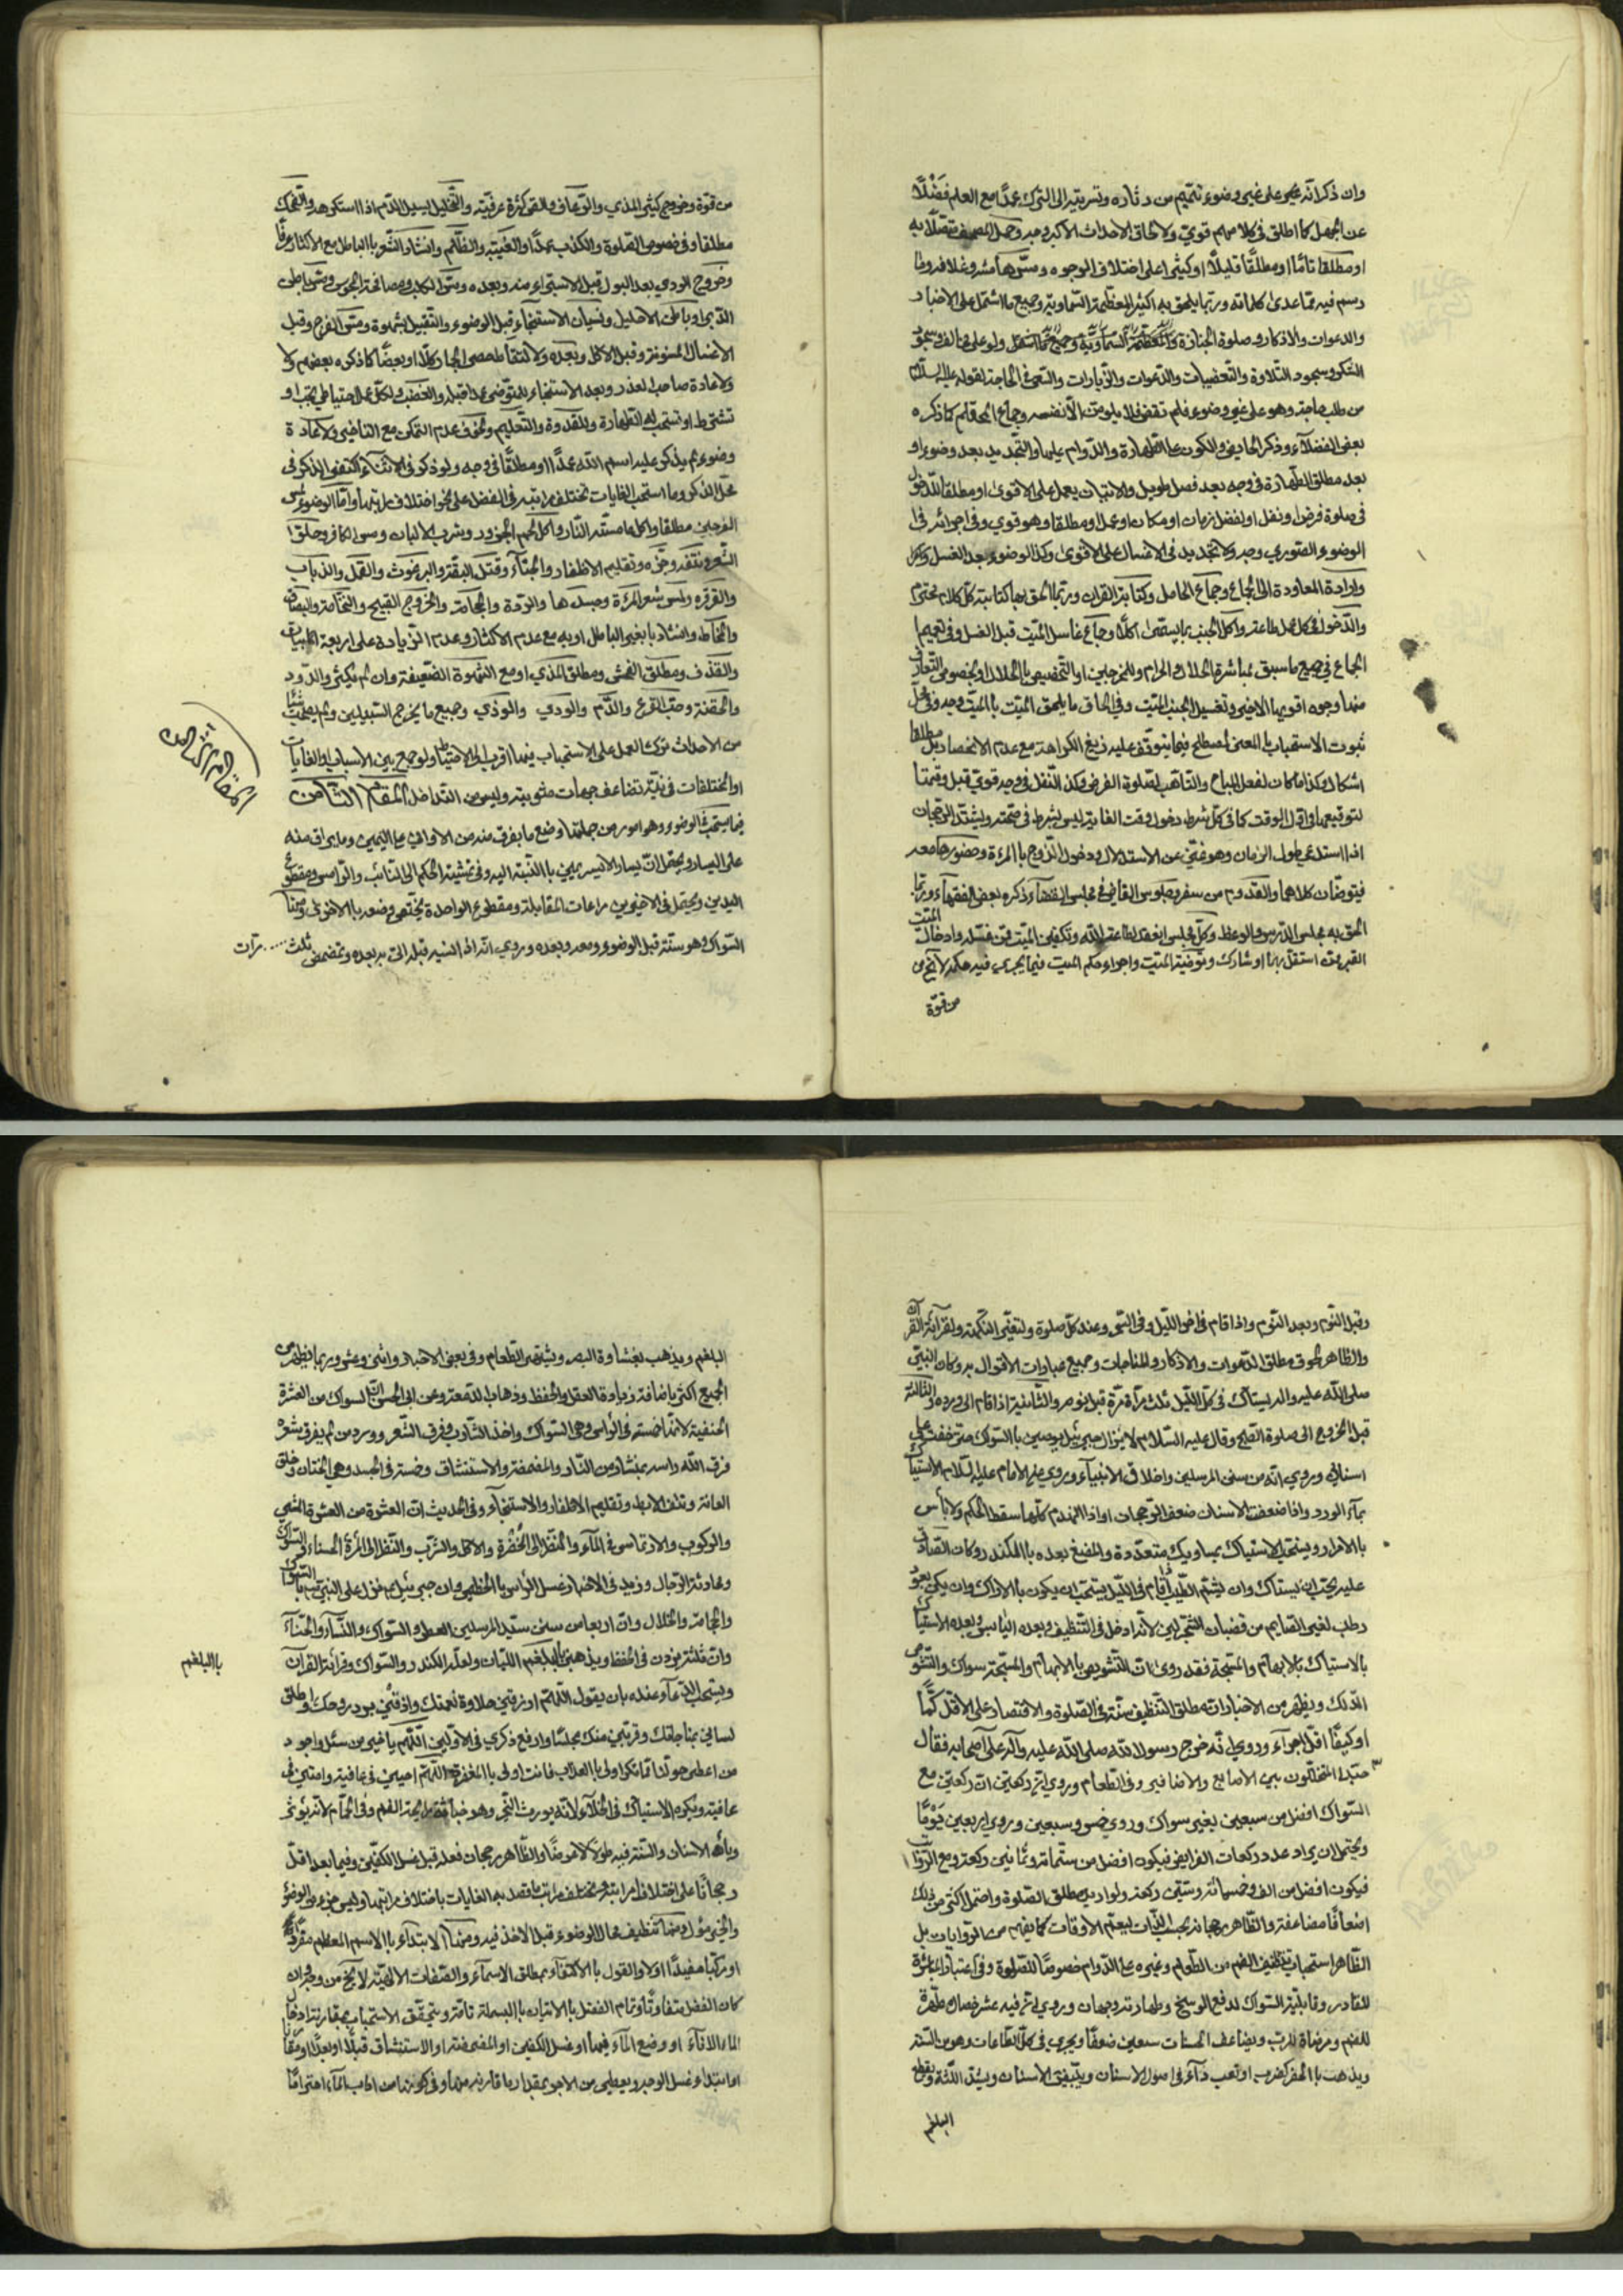 وان ذكر انه على غير وضوء تيمم من دثاره وتسريته الى الترك عمدا مع العلم فضلا
عن الجهل كما اطلق في كلامهم قوي ولا لحاق الاحداث الاكبر وجه وحمل المصحف
او مطلقا تاما او مطلقا قليلا او كثيرا على اختلاف الوجوه ومس
رسم فيه مما عدى كلماته وربما يلحق به اكثر المعظمة السماوية وجميع ما اشتمل على الاخبار
والدعوات والاذكار وصلوة الجنازة
الشكر وسجود التلاوة والتعقيبات والدعوات والزيارات والسعي في الحاجة لقوله عليه السلام
من طلب حاجة وهو على غير وضوء فلم تقض فلا يلومن الا نفسه وجماع المحتلم كما ذكره
بعض الفضلاء وذكر الحايض والكون على الطهارة والدوام عليها والتجديد بعد وضوء او
بعد مطلق الطهارة في وجه بعد فصل طويل والاتيان بعمل على الاقوى او مطلقا للدخول
في صلوة فرض او نفل او لفضل زمان او مكان او عمل او مطلقا وهو قوي وفي اجرائه في
الوضوء الصوري وجه ولا تجديد في الاغسال على الاقوى وكذا الوضوء بعد الغسل
وارادة المعاودة الى الجماع وجماع الحامل وكتابة القران وربما الحق بها كتابة كل كلام محترم
والدخول في كل عمل طاعة واكل الجنب بما يسمى اكلا وجماع غاسل الميت قبل الغسل وفي تعميم
الجماع في جميع ما سبق لمباشرة الحلال والحرام وللفرجين او التخصيص بالحلال او بخصوص المتعارف
منها وجوه اقويها الاخير وتغسيل الجنب الميت وفي الحاق ما يلحق الميت بالميت وجه وفي محل
ثبوت الاستحباب بالمعنى المصطلح فيما يتوقف عليه رفع الكراهة مع عدم الانحصار بل مطلقا
اشكال وكذا ما كان لفعل المباح والتاهب لصلوة الفرض وكذا النفل في وجه قوي قبل وقتها
لتوقيعها في اول الوقت كما في كل شرط دخول وقت الغاية ليس بشرط في صحته ويشتد الرجحان
اذا استدعي طول الزمان وهو غني عن الاستدلال ودخول الزوج بالمرئة وحضورها معه
فيتوضان كلاهما والقدوم من سفر وجلوس القاضي في مجلس القضاء ذكره بعض الفقهاء وربما
الحق به مجلس الدرس والوعظ وكل مجلس انعقد لطاعة الله وتكفين الميت ممن غسله وادخال الميت
القبر ممن استقل بها او شارك وتوضية الميت واجراء حكم الميت فيما يجري فيه حكمه لا يخ من
من قوة
من قوة وخروج كثير المذي والرعاف والقي كثره عرفية والتخليل يسيل الدم اذا استكرهه والضحك
مطلقا وفي خصوص الصلوة والكذب عمدا والغيبة والظلم وانشاد الشعر بالباطل مع الاكثار عرفا
وخروج الودي بعد البول قبل الاستبراء منه وبعده ومس الكلب ومصافحة المجوس ومس باطن
الدبر او باطن الاحليل ونسيان الاستنجاء قبل الوضوء والتقبيل بشهوة ومس الفرج وقبل
الاغسال المسنونة وقبل الاكل وبعده ولالتقاط حصى الجمار كلا او بعضا كما ذكره بعضهم
ولاعادة صاحب العذر وبعد الاستنجاء للمتوضي عمدا قبله والغضب ولكل عمل احتياطي تجب او
تشترط او تستحب له الطهارة وللقدوة والتعليم ولخوف عدم التمكن مع التاخير ولاعادة
وضوء لم يذكر عليه اسم الله عمدا او مطلقا في وجه ولو ذكر في الاثناء اكتفى بالذكر في
محل الذكر وما استحب للغايات تختلف مراتبه في الفضل على نحو اختلاف مراتبها واما الوضوء لمس
الفرجين مطلقا واكل ما مسته النار واكل لحم الجزور وشرب الالبان ومس الكافر وحلق
الشعر ونتفه وجزه وتقليم الاظفار والجشاء وقتل البقة والبرغوث والقمل والذباب
والقرقره ولمس شعر المرئة وجسدها والردة والحجامة والخروج القيح والنخامة والبصاق
والمخاط وانشاد بغير الباطل او به مع عدم الاكثار وعدم الزيادة على اربعة ابيات
والقذف ومطلق الفحش ومطلق المذي او مع الشهوة الضعيفة وان لم يكثر والدود
والحقنة وحب القرع والدم والودي والوذي وجميع ما يخرج من السبيلين ولم يصحب شيئا
من الاحداث ترك العمل على الاستحباب فيها اقرب الى الاحتياط ولو جمع بين الاسباب او الغايات
او المختلفات في نية تضاعف جهات مثوبته وليس من التداخل المقام الثامن
فيما يستحب للوضوء وهو امور من جملتها وضع ما يغرف منه من الاواني على اليمين وما يراق منه
على اليسار ويحتمل ان يسار الايسر يمين بالنسبة اليه وفي تمشية الحكم الى النائب والراسي ومقطوع
اليدين ويحتمل في الاخيرين مراعات المقابلة ومقطوع الواحدة يختص وضعه بالاخرى ومنها
السواك وهو سنة قبل الوضوء ومعه وبعده وروي انه اذا نسيه قبله اتى به بعده وتمضمض ثلث مرات
المقام الثامن
وقبل النوم وبعد النوم واذا قام في اخر الليل وفي السحر وعند كل صلوة ولتغير النكهة ولقراءة القران
والظاهر لحوق مطلق الدعوات والاذكار والمناجات وجميع عبادات الاقوال به وكان النبي
صلى الله عليه واله يستاك في كل الليل ثلث مرات مرة قبل نومه والثانية اذا قام الى ورده والثالثة
قبل الخروج الى صلوة الصبح وقال عليه السلام لا يزال جبرئيل يوصيني بالسواك حتى خفت على
اسناني وروي انه من سنن المرسلين واخلاق الانبياء وروي عن الامام عليه السلام الاستياك
بماء الورد واذا ضعفت الاسنان ضعف الرجحان او اذا انهدم كلها سقط الحكم ولا باس
بالامرار ويستحب الاستياك بمساويك متعددة والمضغ بعده بالكندر وكان الصادق
عليه يحب ان يستاك وان يشتم الطيب اذا قام في الليل يستحب ان يكون بالاراك وان يكن بعود
رطب لغير الصايم من قضبان الشجر لين لانه ادخل في التنظيف وبعده اليابس وبعده الاستياك
بالاستياك بالابهام والمسبحة فقد روى ان التشويص بالابهام والمسبحة سواك والتشوص
الدلك ويظهر من الاخبار ان مطلق التنظيف سنة في الصلوة والاقتصار على الاقل كما
او كيفا اقل اجراء وروي انه خرج رسول الله صلى الله عليه وآله على اصحابه فقال
حبذا المتخللون بين الاصابع والاضافير وفي الطعام وروي ان ركعتين مع
السواك افضل من سبعين بغير سواك وروي خمس وسبعين وروي اربعين يوما
ويحتمل ان يراد عدد ركعات الفرايض فيكون افضل من ستماة وثمانين ركعة ومع الرواتب
فيكون افضل من الف وخسمائة وستين ركعة ولو اريد مطلق الصلوة واحتمل اكثر من ذلك
اضعافا مضاعفة والظاهر رجحانه بحسب الذات ليعم الاوقات كما يفهم من الروايات بل
الظاهر استحباب تنظيف الفم من الطعام وغيره على الدوام خصوصا للصلوة وفي اعتبار المباشرة
للقادر وقابلية السواك لدفع الوسخ وطهارته وجهان وروي ان فيه عشر خصال مطهرة
للفم ومرضاة للرب ويضاعف الحسنات سبعين ضعفا ويجري في كل الطاعات وهو من السنة
ويذهب بالحفر كضرب او تعب داء في اصول الاسنان ويبيض الاسنان ويشد اللثة ويقطع
البلغم
البلغم ويذهب بغشاوة البصر ويشهي الطعام وفي بعض الاخبار واثنى وعشر وربما يظهر من
الجميع اكثر باضافة زيادة العقل والحفظ وذهاب الدمعة وعن ابي الحسن ان السواك من العشرة
الحنفية لانها خمسة في الراس وهي السواك واخذ الشارب وفرق الشعر وورد من لم يفرق شعره
فرق الله راسه بمنشار من النار والمضمضة والاستنشاق وخمسة في الجسد وهي الختان وحلق
العانة ونتف الابط وتقليم الاظفار والاستنجاء وفي الحديث ان العشرة من العشرة المشي
والركوب والارتماس في الماء والنظر الى الخضرة والاكل والشرب والنظر الى المرئة الحسناء والسواك
ومحادثة الرجال وزيد في الاخبار غسل الراس بالخطمي وان جبرئيل نزل على النبي بالسواك
والحجامة والخلال وان اربعا من سنن سيد المرسلين العطر والسواك والنساء والحناء
وان ثلثة يزدن في الحفظ ويذهبن بالبلغم اللبان ولعله الكندر والسواك وقرائة القرآن
ويستحب الدعاء عنده بان يقول اللهم ارزقني حلاوة نعمتك واذقني برد روحك واطلق
لساني بمناجاتك وقربني منك مجلسا وارفع ذكري في الاولين اللهم يا خير من سئل واجود
من اعطى حولنا مما تكره الى ما تحب
عافية ويكره الاستياك في الخلاء لانه يورث البخر وهو خباثة رايحة الفم وفي الحمام لانه يورث
وباء الاسنان والسنة فيه طولا لا عرضا والظاهر رجحان فعله قبل غسل الكفين وفيما بعد اقل
رجحانا على اختلاف مراتبه وتختلف مراتب ما قصد به الغايات باختلاف مراتبها وليس جزء من الوضوء
والخبر مؤل ومنها تنظيف محال الوضوء قبل الاخذ فيه ومنها الابتداء بالاسم المعظم مفردا
او مركبا مفيدا او لا والقول بالاكتفاء بمطلق الاسماء والصفات الالهية لا يخ من وجه وان
كان الفضل متفاوتا وتمام الفضل بالاتيان بالبسملة تامة ويتحقق الاستحباب بمقارنة ادخال
الماء الاناء او وضع الماء فيها او غسل الكفين او المضمضة او الاستنشاق قبلا او بعدا او مقارنا
او ابتداء غسل الوجه ويعطى من الاجر بمقدار ما قارنه منها وفي كونها من اداب الماء احتراما
بالبلغم